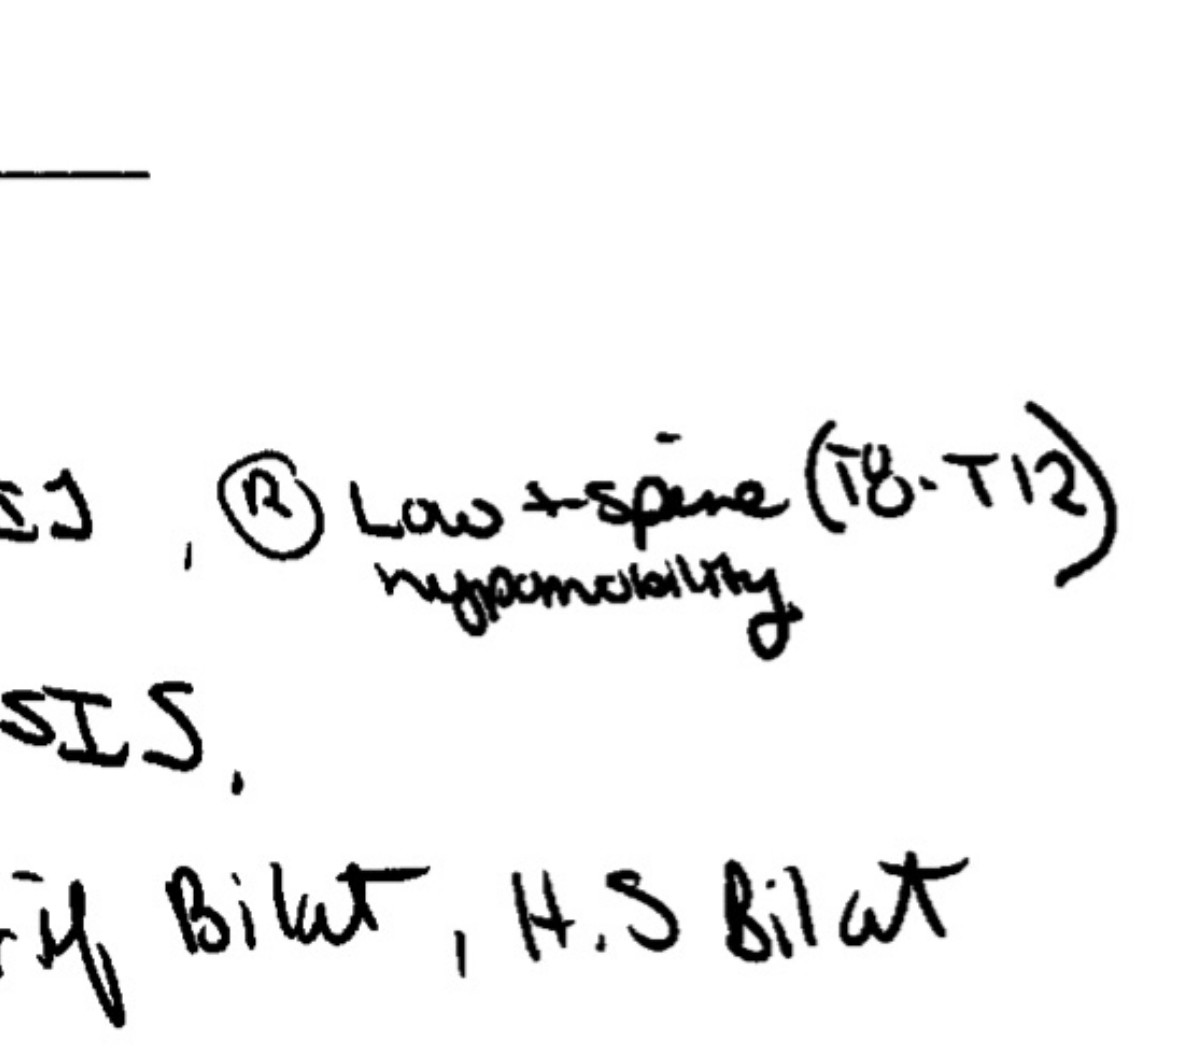 SIJ, Ⓡ Low t-spine (T8-T12)
hypomobility
SIS.
Bilat, H.S Bilat